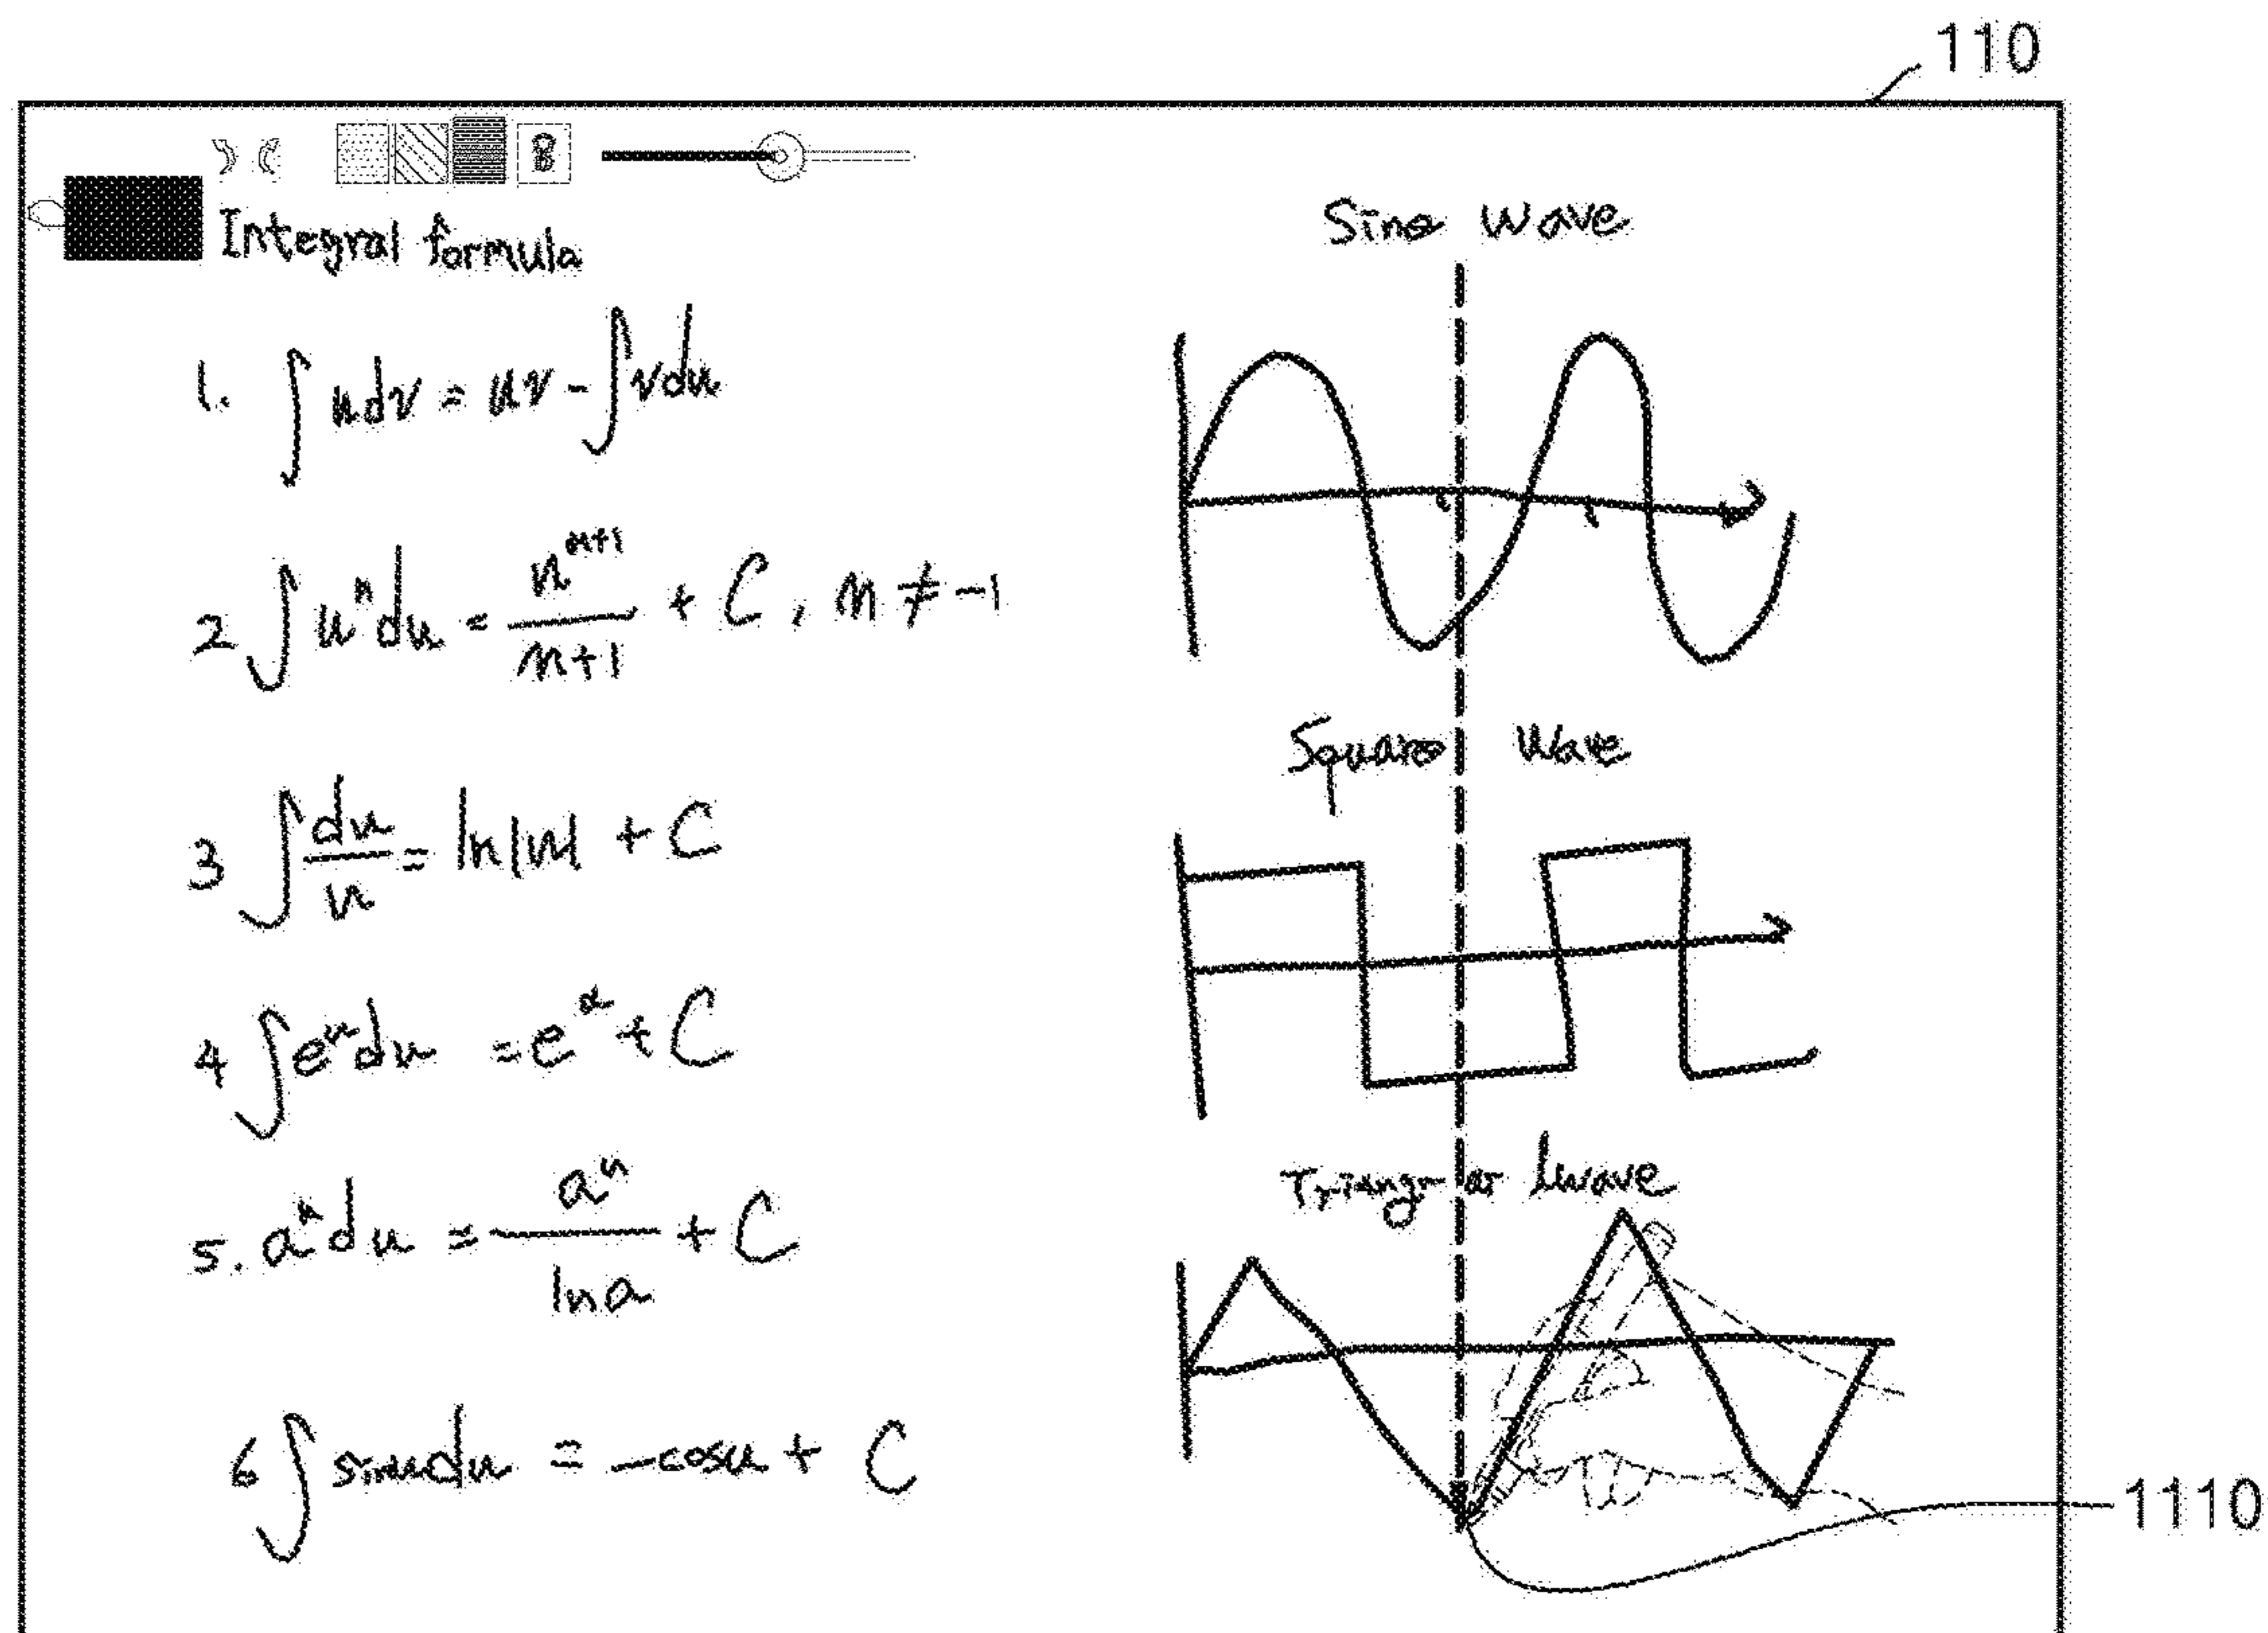 110
Integral formula
1. ∫ u dv = uv - ∫ v du
2 ∫ uⁿ du = uⁿ⁺¹/n+1 + C, n ≠ -1
3 ∫ du/u = ln|u| + C
4 ∫ eᵘ du = eᵘ + C
5. aᵘ du = aᵘ/ln a + C
6 ∫ sin u du = -cos u + C
Sine wave
Square wave
wave
1110